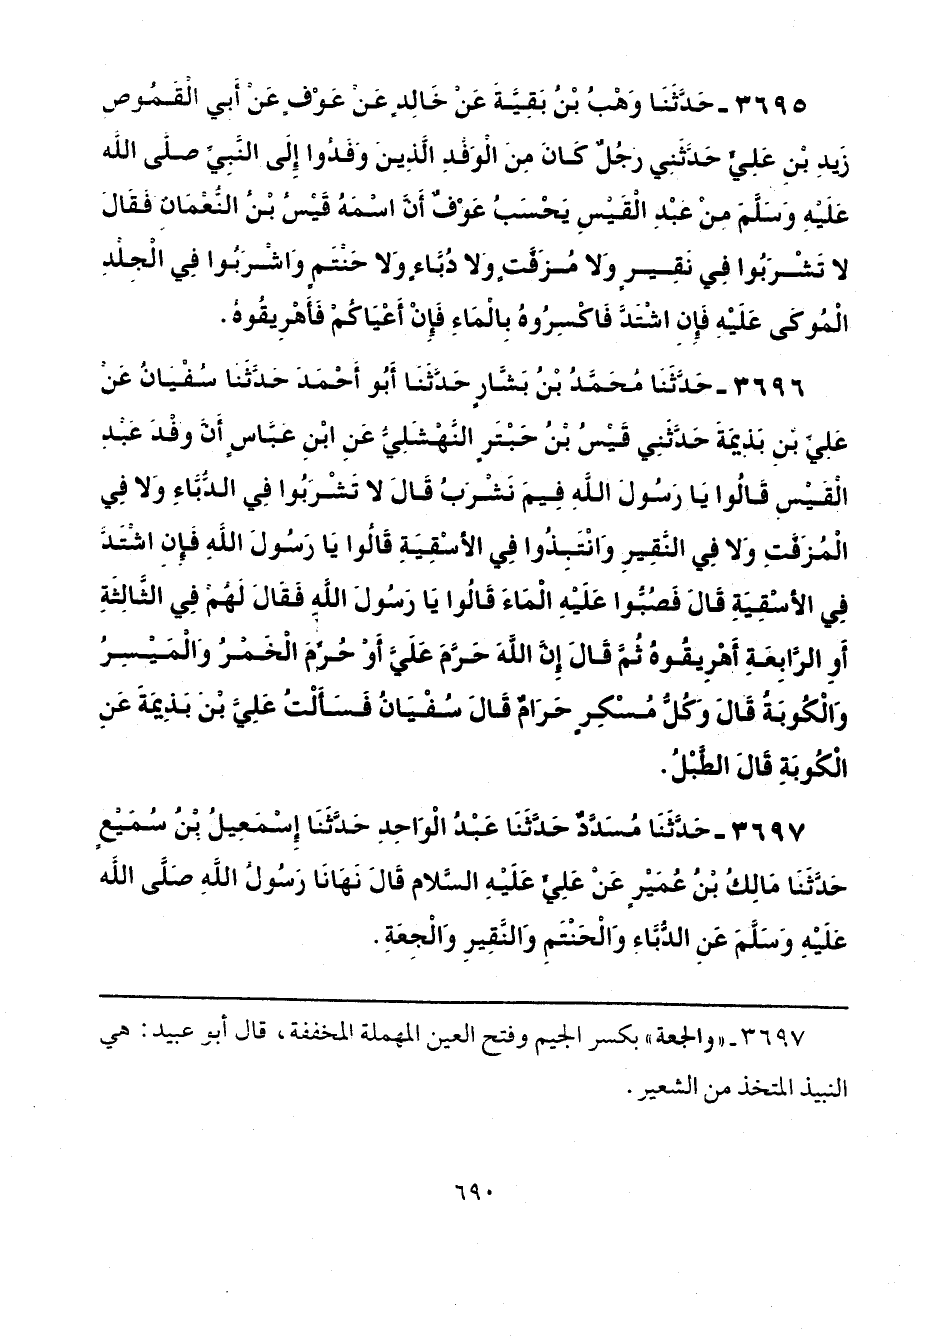 ٣٦٩٥ - حَدَّثَنَا وَهْبُ بْنُ بَقِيَّةَ عَنْ خَالِدٍ عَنْ عَوْفٍ عَنْ أَبِي الْقَمُوصِ
زَيْدِ بْنِ عَلِيٍّ حَدَّثَنِي رَجُلٌ كَانَ مِنَ الْوَفْدِ الَّذِينَ وَفَدُوا إِلَى النَّبِيِّ صَلَّى اللَّه
عَلَيْهِ وَسَلَّمَ مِنْ عَبْدِ الْقَيْسِ يَحْسَبُ عَوْفٌ أَنَّ اسْمَهُ قَيْسُ بْنُ النُّعْمَانِ فَقَالَ
لا تَشْرَبُوا فِي نَقِيرٍ وَلا مُزَفَّتٍ وَلا دُبَّاءٍ وَلا حَنْتَمٍ وَاشْرَبُوا فِي الْجِلْدِ
الْمُوكَى عَلَيْهِ فَإِنِ اشْتَدَّ فَاكْسِرُوهُ بِالْمَاءِ فَإِنْ أَعْيَاكُمْ فَأَهْرِيقُوهُ.
٣٦٩٦ - حَدَّثَنَا مُحَمَّدُ بْنُ بَشَّارٍ حَدَّثَنَا أَبُو أَحْمَدَ حَدَّثَنَا سُفْيَانُ عَنْ
عَلِيِّ بْنِ بَذِيمَةَ حَدَّثَنِي قَيْسُ بْنُ حَبْتَرٍ النَّهْشَلِيُّ عَنِ ابْنِ عَبَّاسٍ أَنَّ وَفْدَ عَبْدِ
الْقَيْسِ قَالُوا يَا رَسُولَ اللَّهِ فِيمَ نَشْرَبُ قَالَ لا تَشْرَبُوا فِي الدُّبَّاءِ وَلا فِي
الْمُزَفَّتِ وَلا فِي النَّقِيرِ وَانْتَبِذُوا فِي الأَسْقِيَةِ قَالُوا يَا رَسُولَ اللَّهِ فَإِنِ اشْتَدَّ
فِي الأَسْقِيَةِ قَالَ فَصُبُّوا عَلَيْهِ الْمَاءَ قَالُوا يَا رَسُولَ اللَّهِ فَقَالَ لَهُمْ فِي الثَّالِثَةِ
أَوِ الرَّابِعَةِ أَهْرِيقُوهُ ثُمَّ قَالَ إِنَّ اللَّهَ حَرَّمَ عَلَيَّ أَوْ حُرِّمَ الْخَمْرُ وَالْمَيْسِرُ
وَالْكُوبَةُ قَالَ وَكُلُّ مُسْكِرٍ حَرَامٌ قَالَ سُفْيَانُ فَسَأَلْتُ عَلِيَّ بْنَ بَذِيمَةَ عَنِ
الْكُوبَةِ قَالَ الطَّبْلُ.
٣٦٩٧ - حَدَّثَنَا مُسَدَّدٌ حَدَّثَنَا عَبْدُ الْوَاحِدِ حَدَّثَنَا إِسْمَعِيلُ بْنُ سُمَيْعٍ
حَدَّثَنَا مَالِكُ بْنُ عُمَيْرٍ عَنْ عَلِيٍّ عَلَيْهِ السَّلام قَالَ نَهَانَا رَسُولُ اللَّهِ صَلَّى اللَّه
عَلَيْهِ وَسَلَّمَ عَنِ الدُّبَّاءِ وَالْحَنْتَمِ وَالنَّقِيرِ وَالْجِعَةِ.
٣٦٩٧ - «والجعة» بكسر الجيم وفتح العين المهملة المخففة، قال أبو عبيد: هي
النبيذ المتخذ من الشعير.
٦٩٠